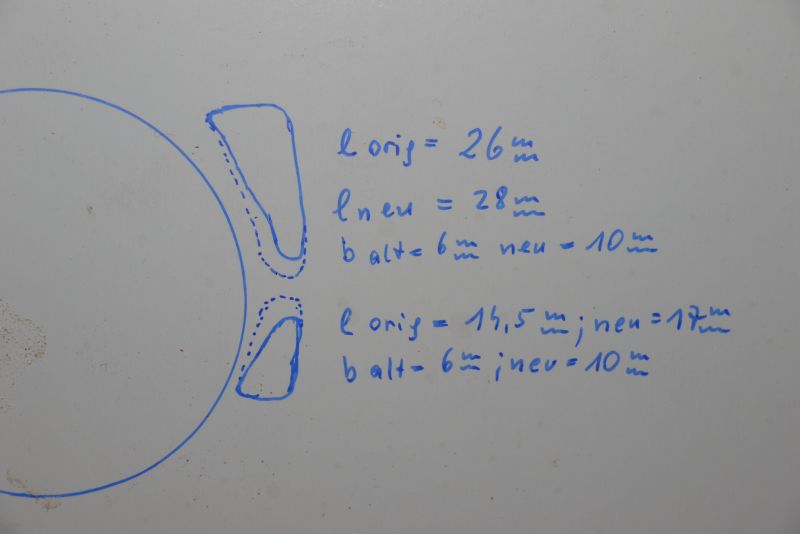 l orig = 26 mm
l neu = 28 mm
b alt = 6 mm neu = 10 mm
l orig = 14,5 mm ; neu = 17 mm
b alt = 6 mm ; neu = 10 mm